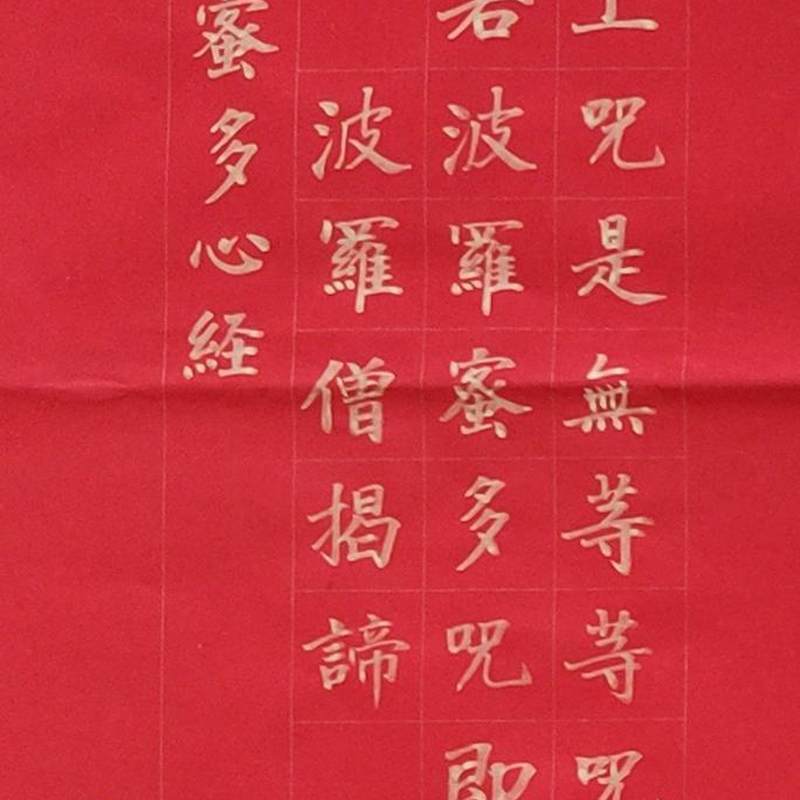 上咒是無等等咒
若波羅蜜多咒即
波羅僧揭諦
蜜多心経